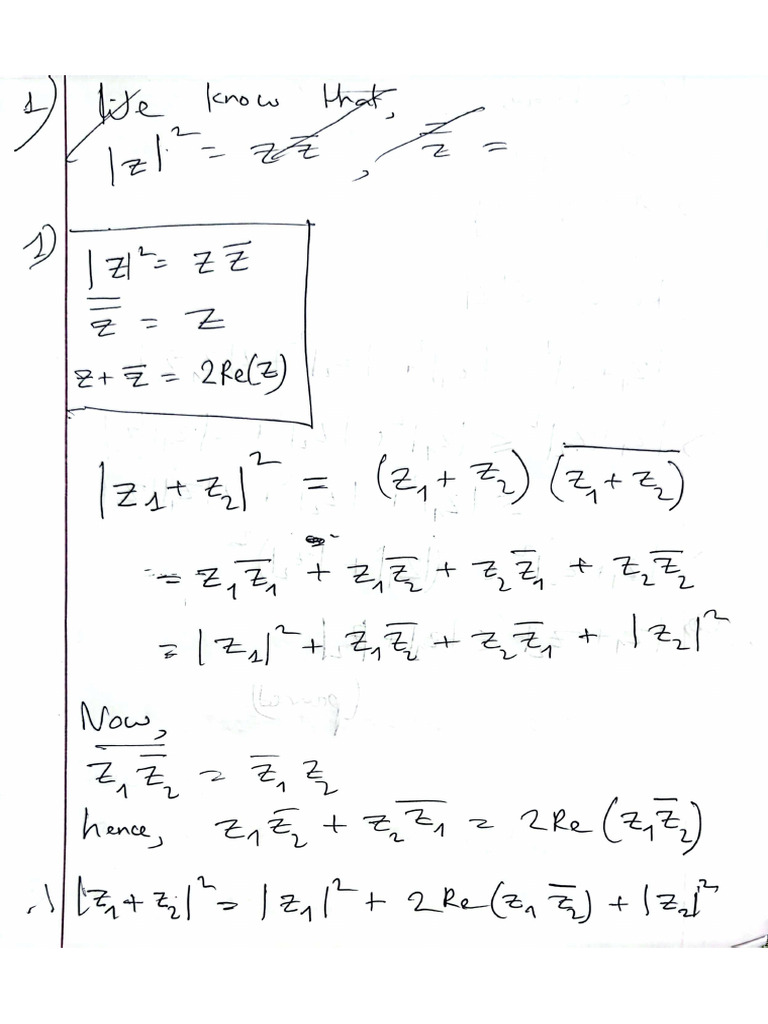 1) We know that,
|z|² = z z̄ , z̄ =
1) |z|² = z z̄
z̿ = z
z + z̄ = 2Re(z)
|z₁ + z₂|² = (z₁ + z₂) (\overline{z₁ + z₂})
= z₁z̄₁ + z₁z̄₂ + z₂z̄₁ + z₂z̄₂
= |z₁|² + z₁z̄₂ + z₂z̄₁ + |z₂|²
Now,
\overline{z₁ z̄₂} = z̄₁ z₂
hence, z₁z̄₂ + z₂z̄₁ = 2Re(z₁z̄₂)
∴ |z₁ + z₂|² = |z₁|² + 2Re(z₁ z̄₂) + |z₂|²